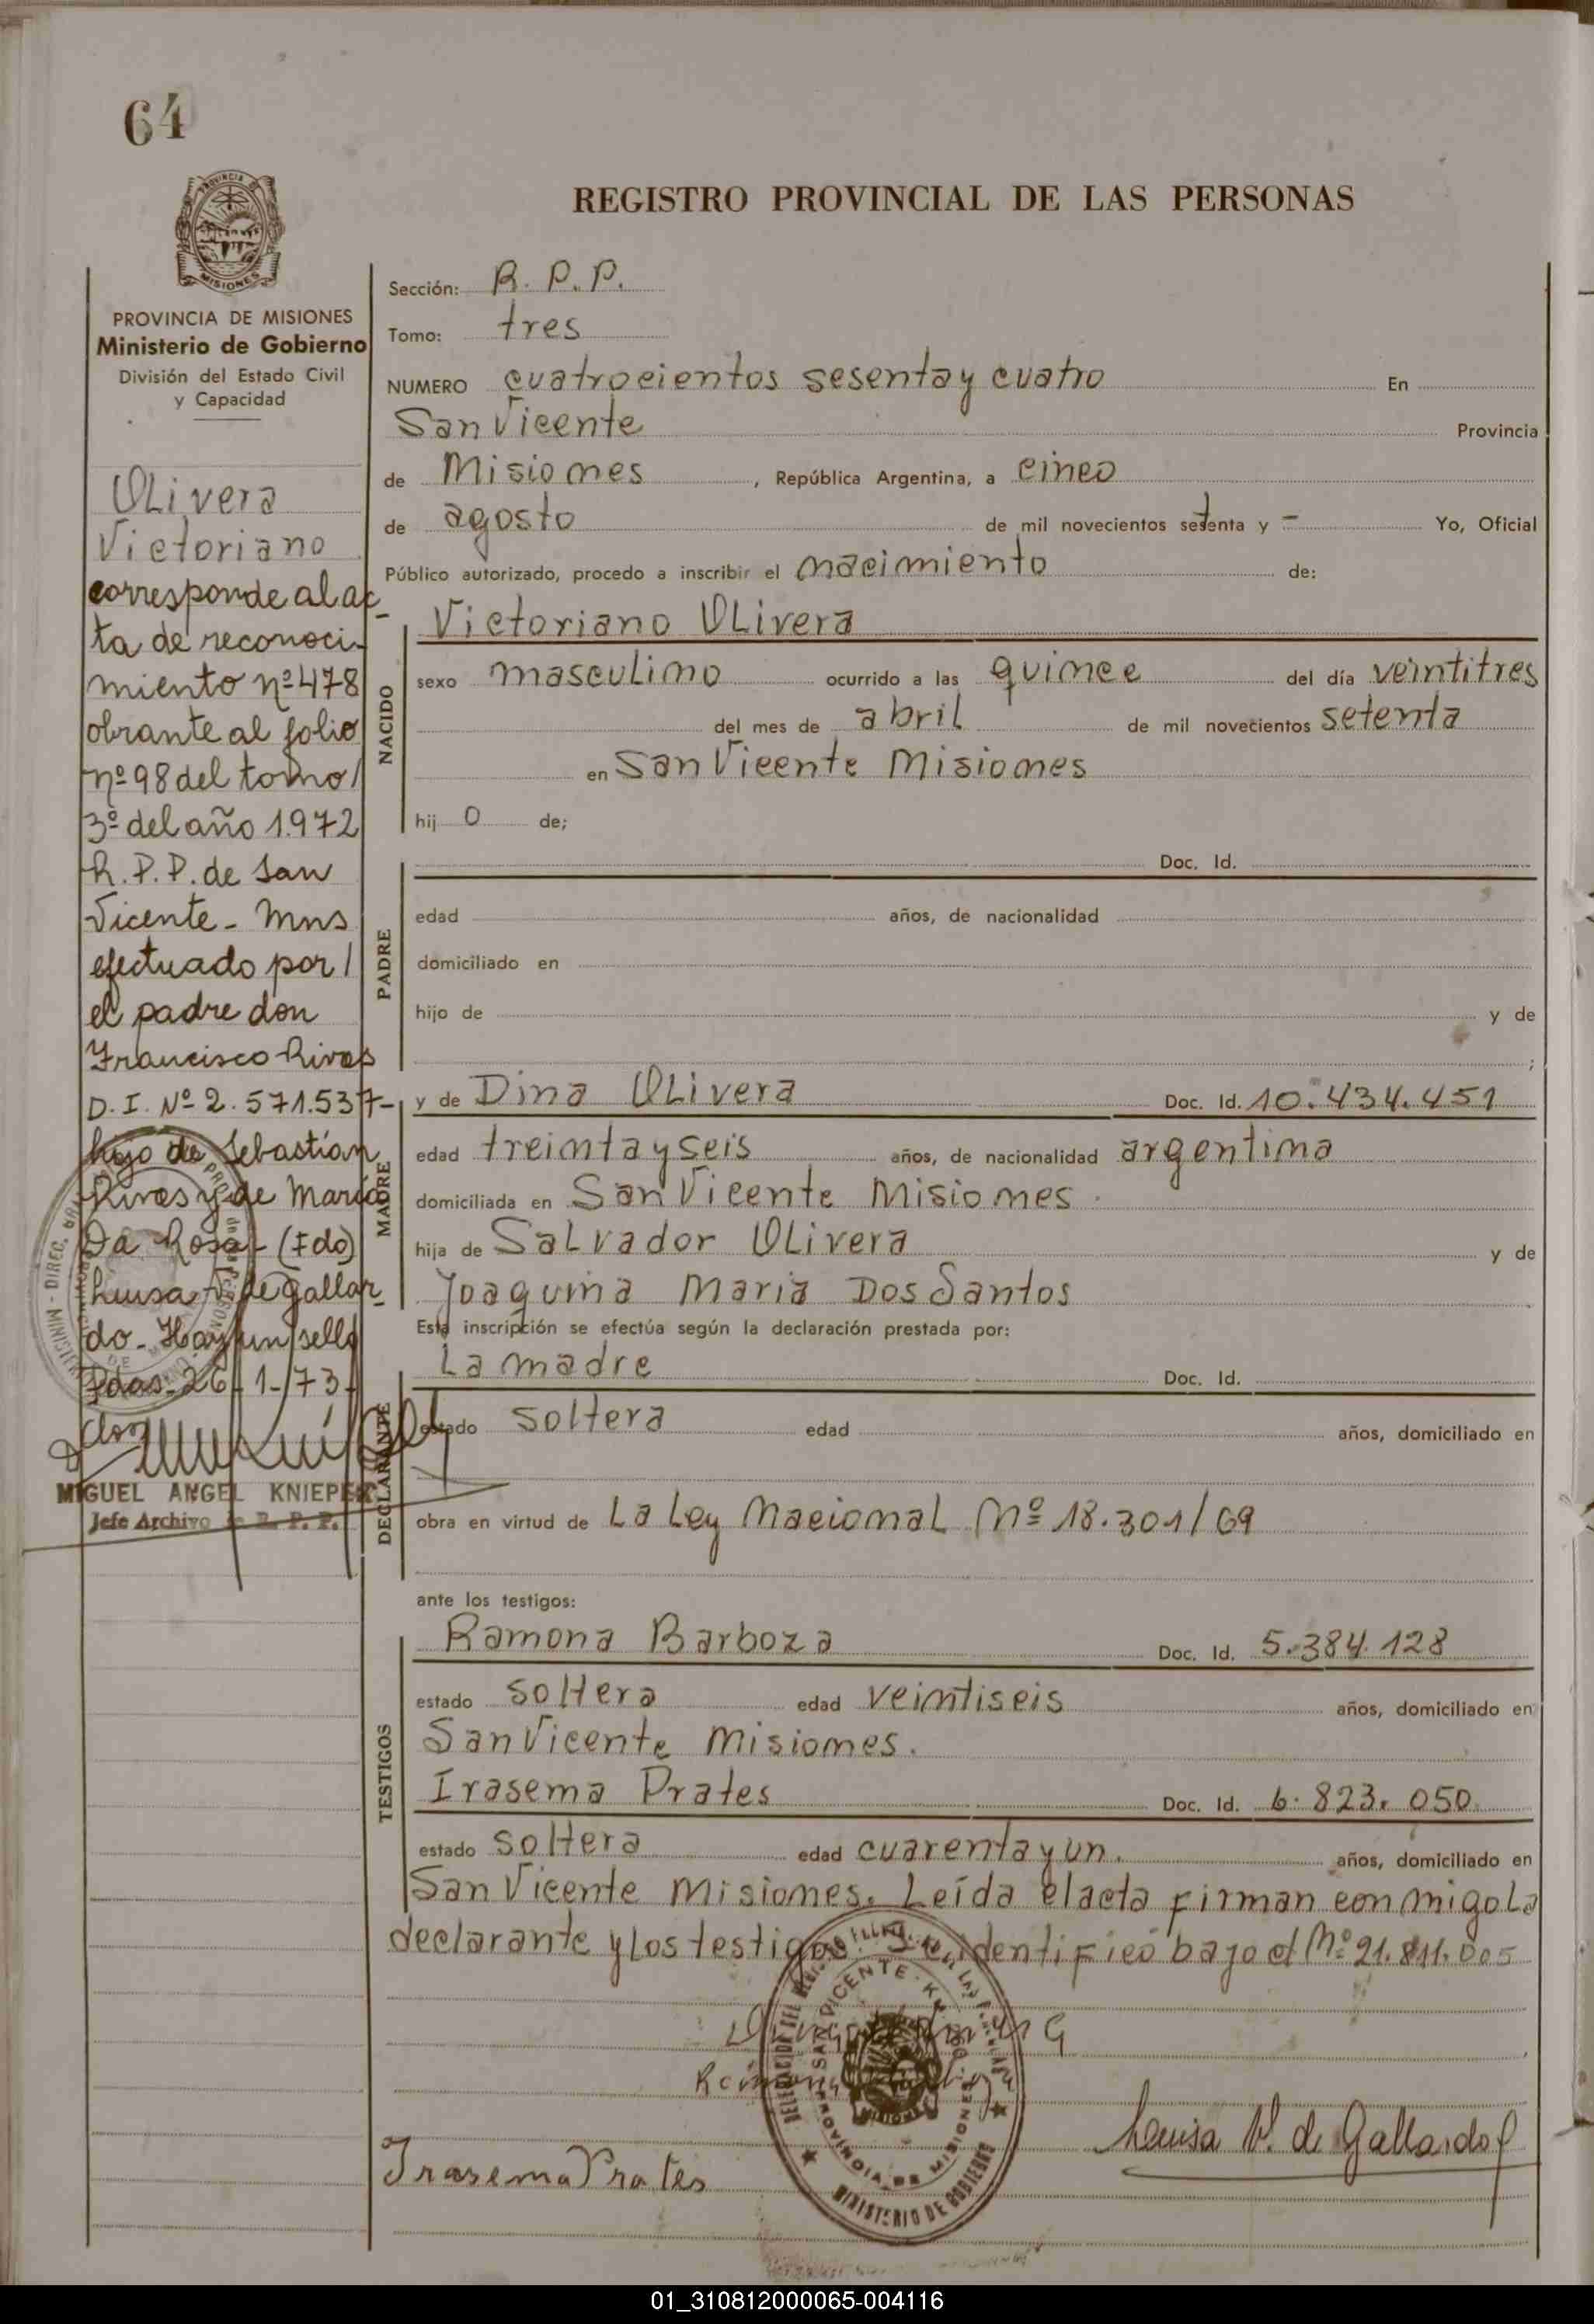 64
REGISTRO PROVINCIAL DE LAS PERSONAS
PROVINCIA DE MISIONES
Ministerio de Gobierno
División del Estado Civil
y Capacidad
Olivera
Victoriano
corresponde al ac-
ta de reconoci-
miento nº 478
obrante al folio
nº 98 del tomo/
3º del año 1.972
R.P.P. de San
Vicente - Mns
efectuado por/
el padre don
Francisco Rivas
D.I. Nº 2.571.537-
hijo de Sebastián
Rivas y de María
Da Rosa - (Fdo)
Luisa V. de Gallar-
do - Hay un sello
Pdas - 26-1-73-
MIGUEL ANGEL KNIEPER
Jefe Archivo de R. P. P.
Sección: R. P. P.
Tomo: tres
NUMERO cuatrocientos sesenta y cuatro En
San Vicente Provincia
de Misiones, República Argentina, a cinco
de agosto de mil novecientos setenta y - Yo, Oficial
Público autorizado, procedo a inscribir el nacimiento de:
NACIDO
Victoriano Olivera
sexo masculino ocurrido a las quince del día veintitres
del mes de abril de mil novecientos setenta
en San Vicente Misiones
hij o de;
PADRE
Doc. Id.
edad años, de nacionalidad
domiciliado en
hijo de y de
;
MADRE
y de Dina Olivera Doc. Id. 10.434.451
edad treinta y seis años, de nacionalidad argentina
domiciliada en San Vicente Misiones.
hija de Salvador Olivera y de
Joaquina Maria Dos Santos
Esta inscripción se efectúa según la declaración prestada por:
DECLARANTE
La madre Doc. Id.
estado soltera edad años, domiciliado en
obra en virtud de La Ley Nacional Nº 18.301/69
ante los testigos:
TESTIGOS
Ramona Barboza Doc. Id. 5.384.128
estado soltera edad veintiseis años, domiciliado en
San Vicente Misiones.
Irasema Prates Doc. Id. 6.823.050.
estado soltera edad cuarenta y un. años, domiciliado en
San Vicente Misiones. Leída el acta firman conmigo La
declarante y los testigos. Se identificó bajo el Nº 21.811.005
SAN VICENTE
PROVINCIA DE MISIONES
MINISTERIO DE GOBIERNO
Irasema Prates
Luisa V. de Gallardo
01_310812000065-004116